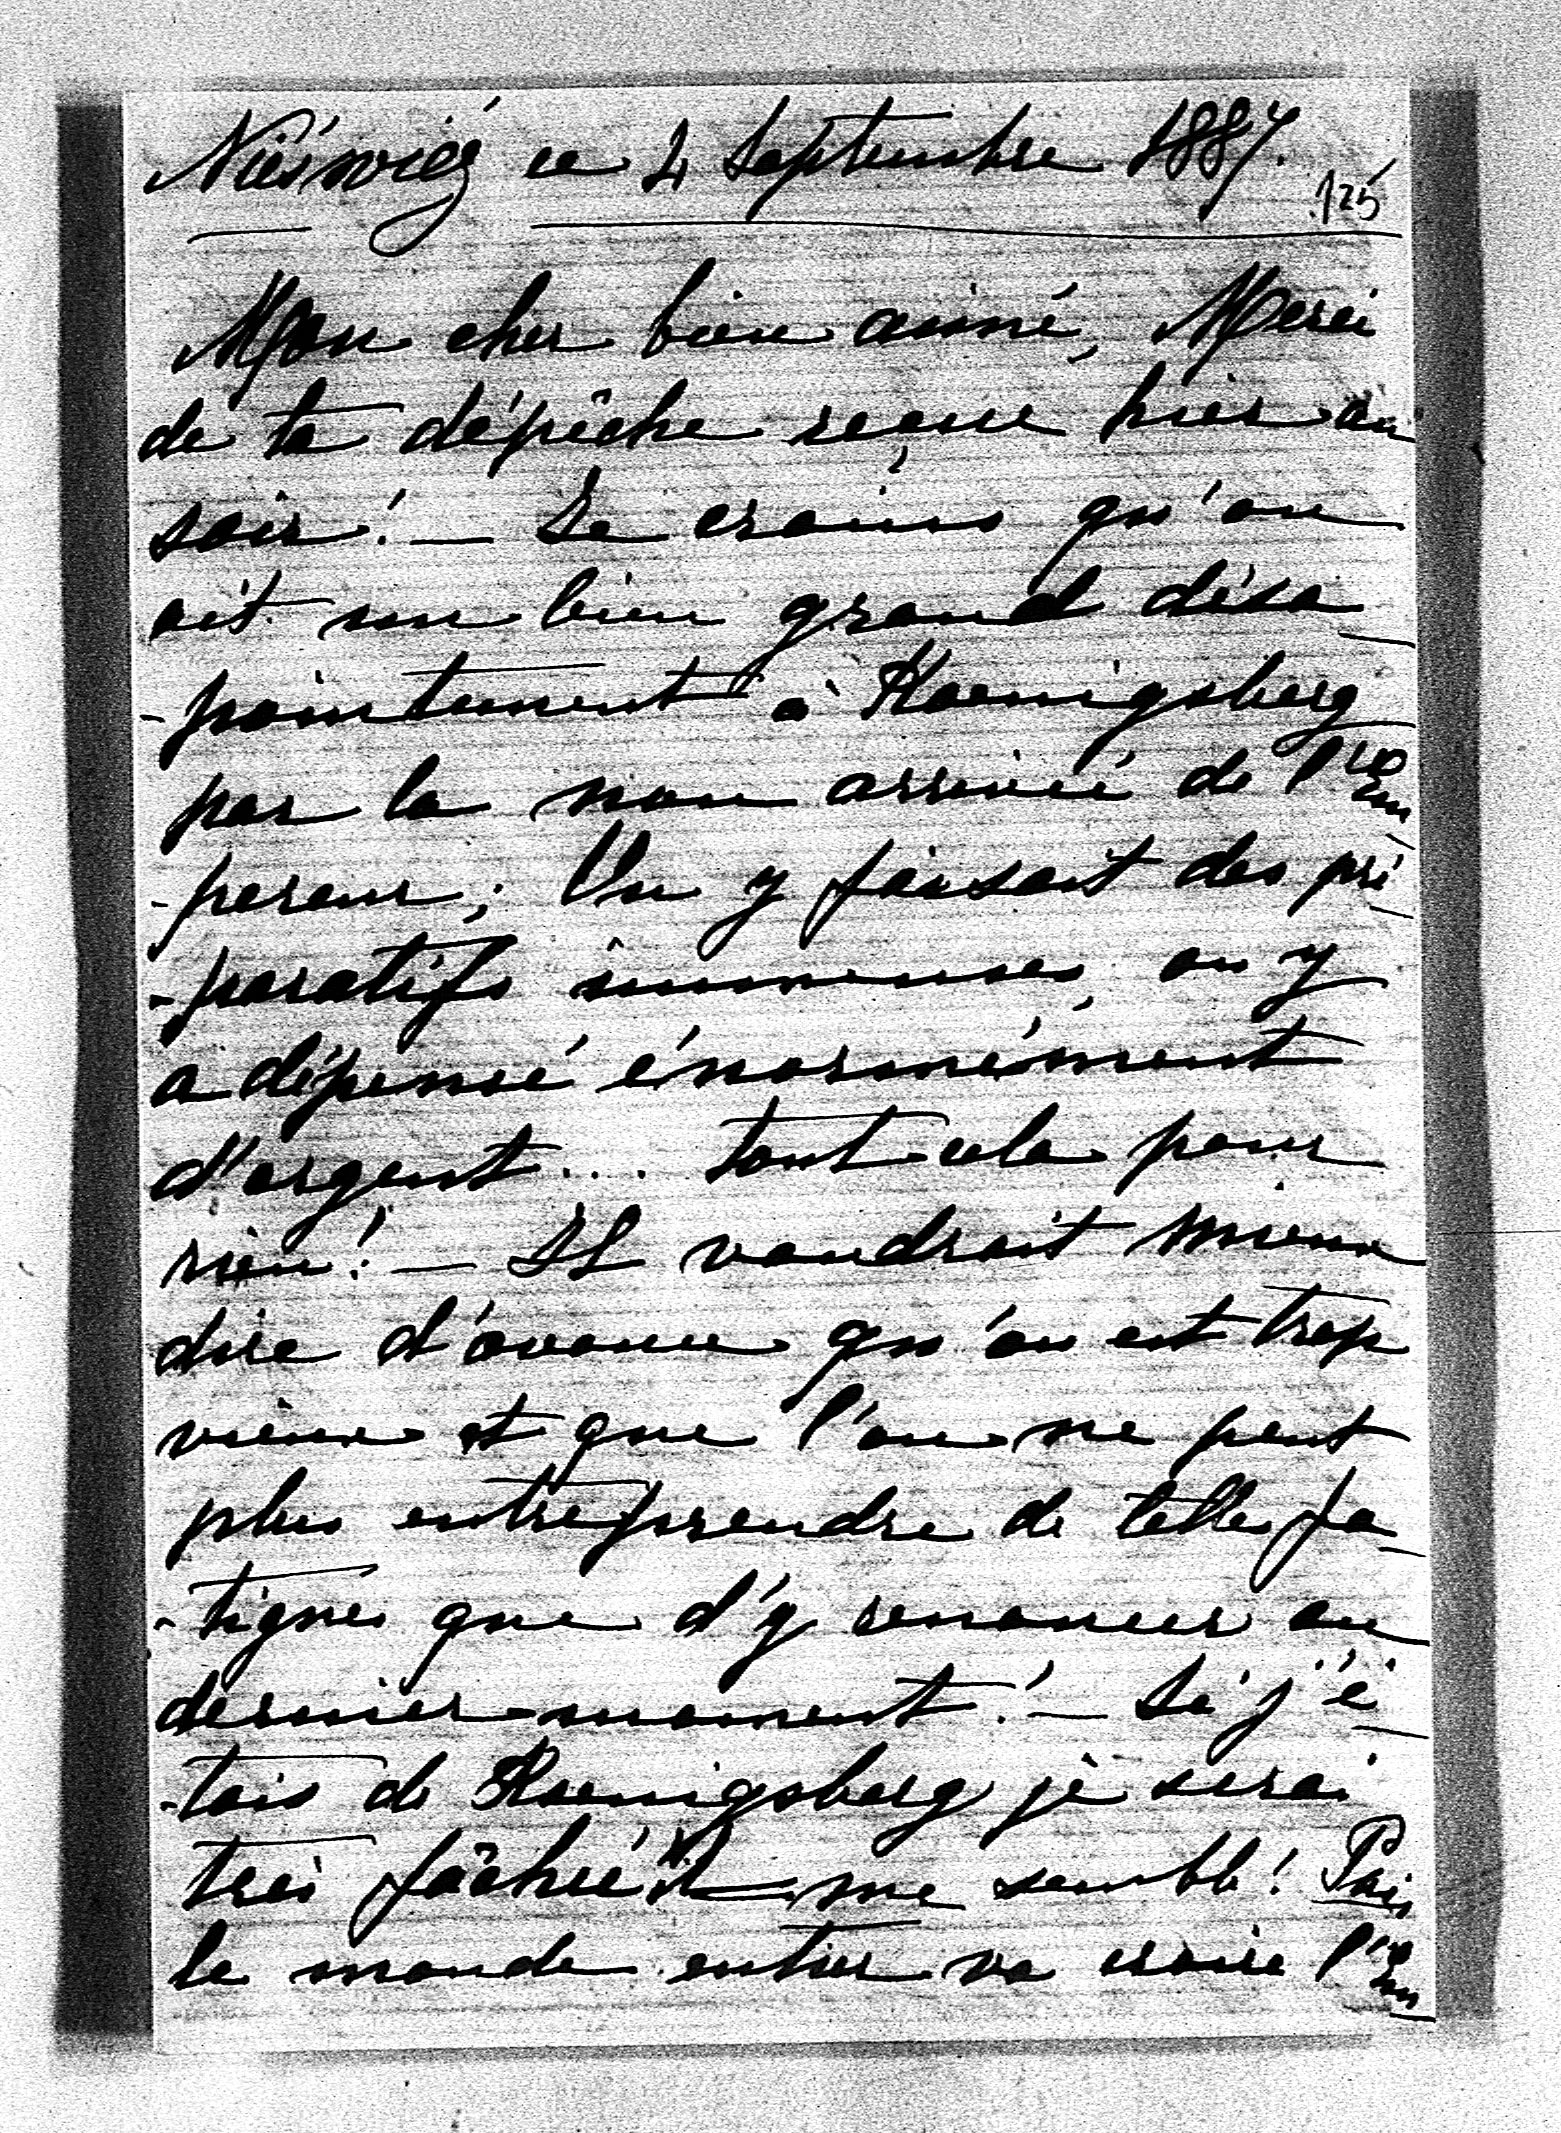 Nieśwież ce 4 Septembre 1887.
125
Mon cher bien aimé, Merci
de ta dépêche reçue hier au
soir! — Je crains qu'on
ait un bien grand désa
-pointement à Koenigsberg
par la non arrivée de l'Em
-pereur; On y faisait des pré
-paratifs immenses, on y
a dépensé énormément
d'argent.... tout cela pour
rien! — Il vaudrait mieux
dire d'avance qu'on est trop
vieux et que l'on ne peut
plus entreprendre de telle fa
-tigues que d'y renoncer au
dernier moment! — Si j'é
-tais de Koenigsberg je serai
très fâchée il me semble! Puis
le monde entier va croire l'Em